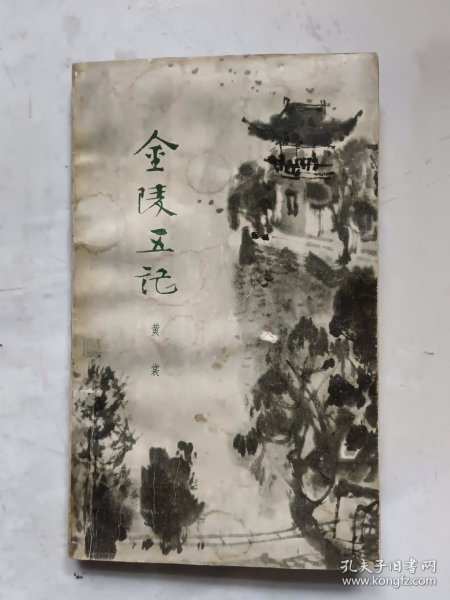 金陵五记
黄裳
孔夫子旧书网
www.kongfz.com